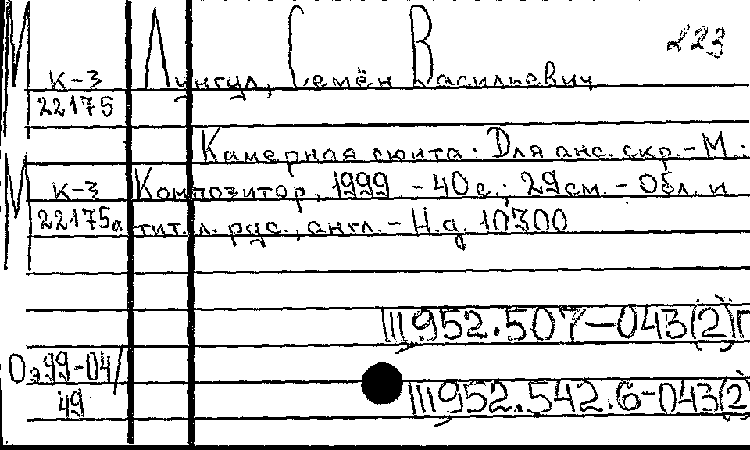 223
К-3 Лунгул, Семён Васильевич
22175
Камерная сюита: Для анс. скр. - М.:
К-3 Композитор, 1999 - 40 с.; 29 см. - Обл. и
22175а тит. л. рус., англ. - Н.д. 10300
Ш952.507-043(2)
Оэ99-04/
49 Ш952.542.6-043(2)